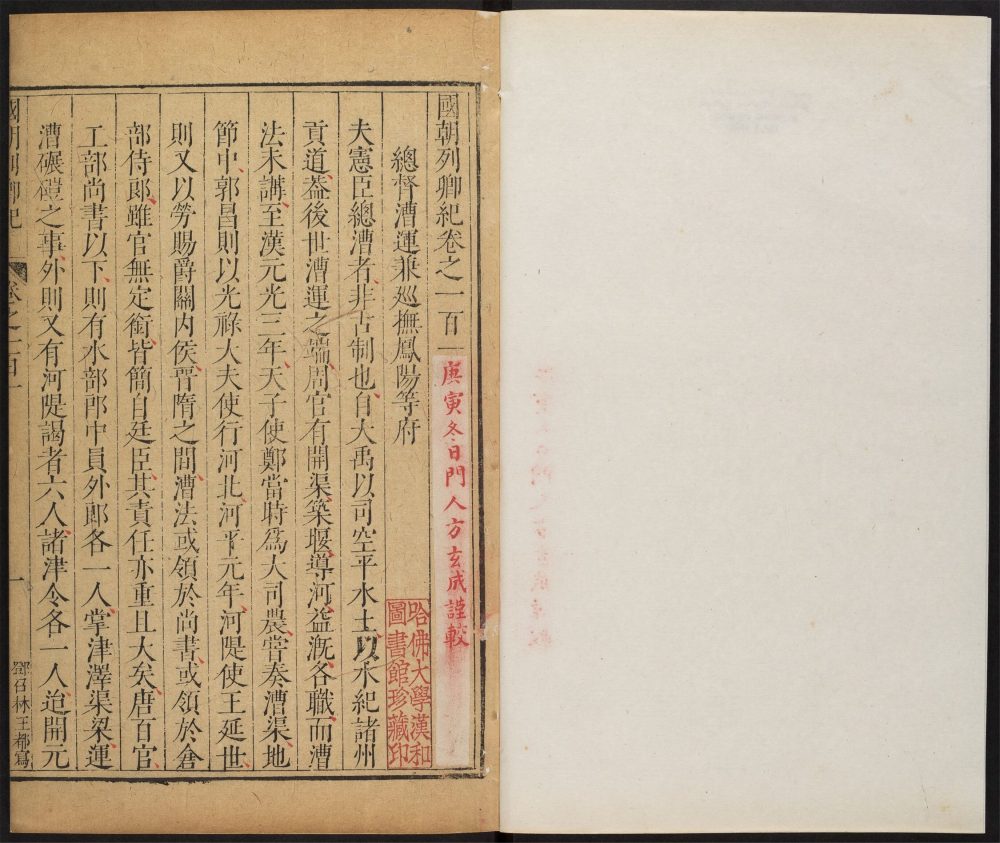 國朝列卿紀卷之一百一
庚寅冬日門人方玄成謹較
哈佛大學漢和
圖書館珍藏印
總督漕運兼巡撫鳳陽等府
夫憲臣總漕者非古制也自大禹以司空平水土以水紀諸州
貢道葢後世漕運之端周官有開渠築堰導河益漑各職而漕
法未講至漢元光三年天子使鄭當時爲大司農嘗奏漕渠地
節中郭昌則以光祿大夫使行河北河平元年河隄使王延世
則又以勞賜爵關內侯晉隋之間漕法或領於尚書或領於倉
部侍郎雖官無定銜皆簡自廷臣其責任亦重且大矣唐百官
工部尚書以下則有水部郎中員外郎各一人掌津澤渠梁運
漕碾磑之事外則又有河隄謁者六人諸津令各一人迨開元
國朝列卿紀 卷之一百一 一
王都寫